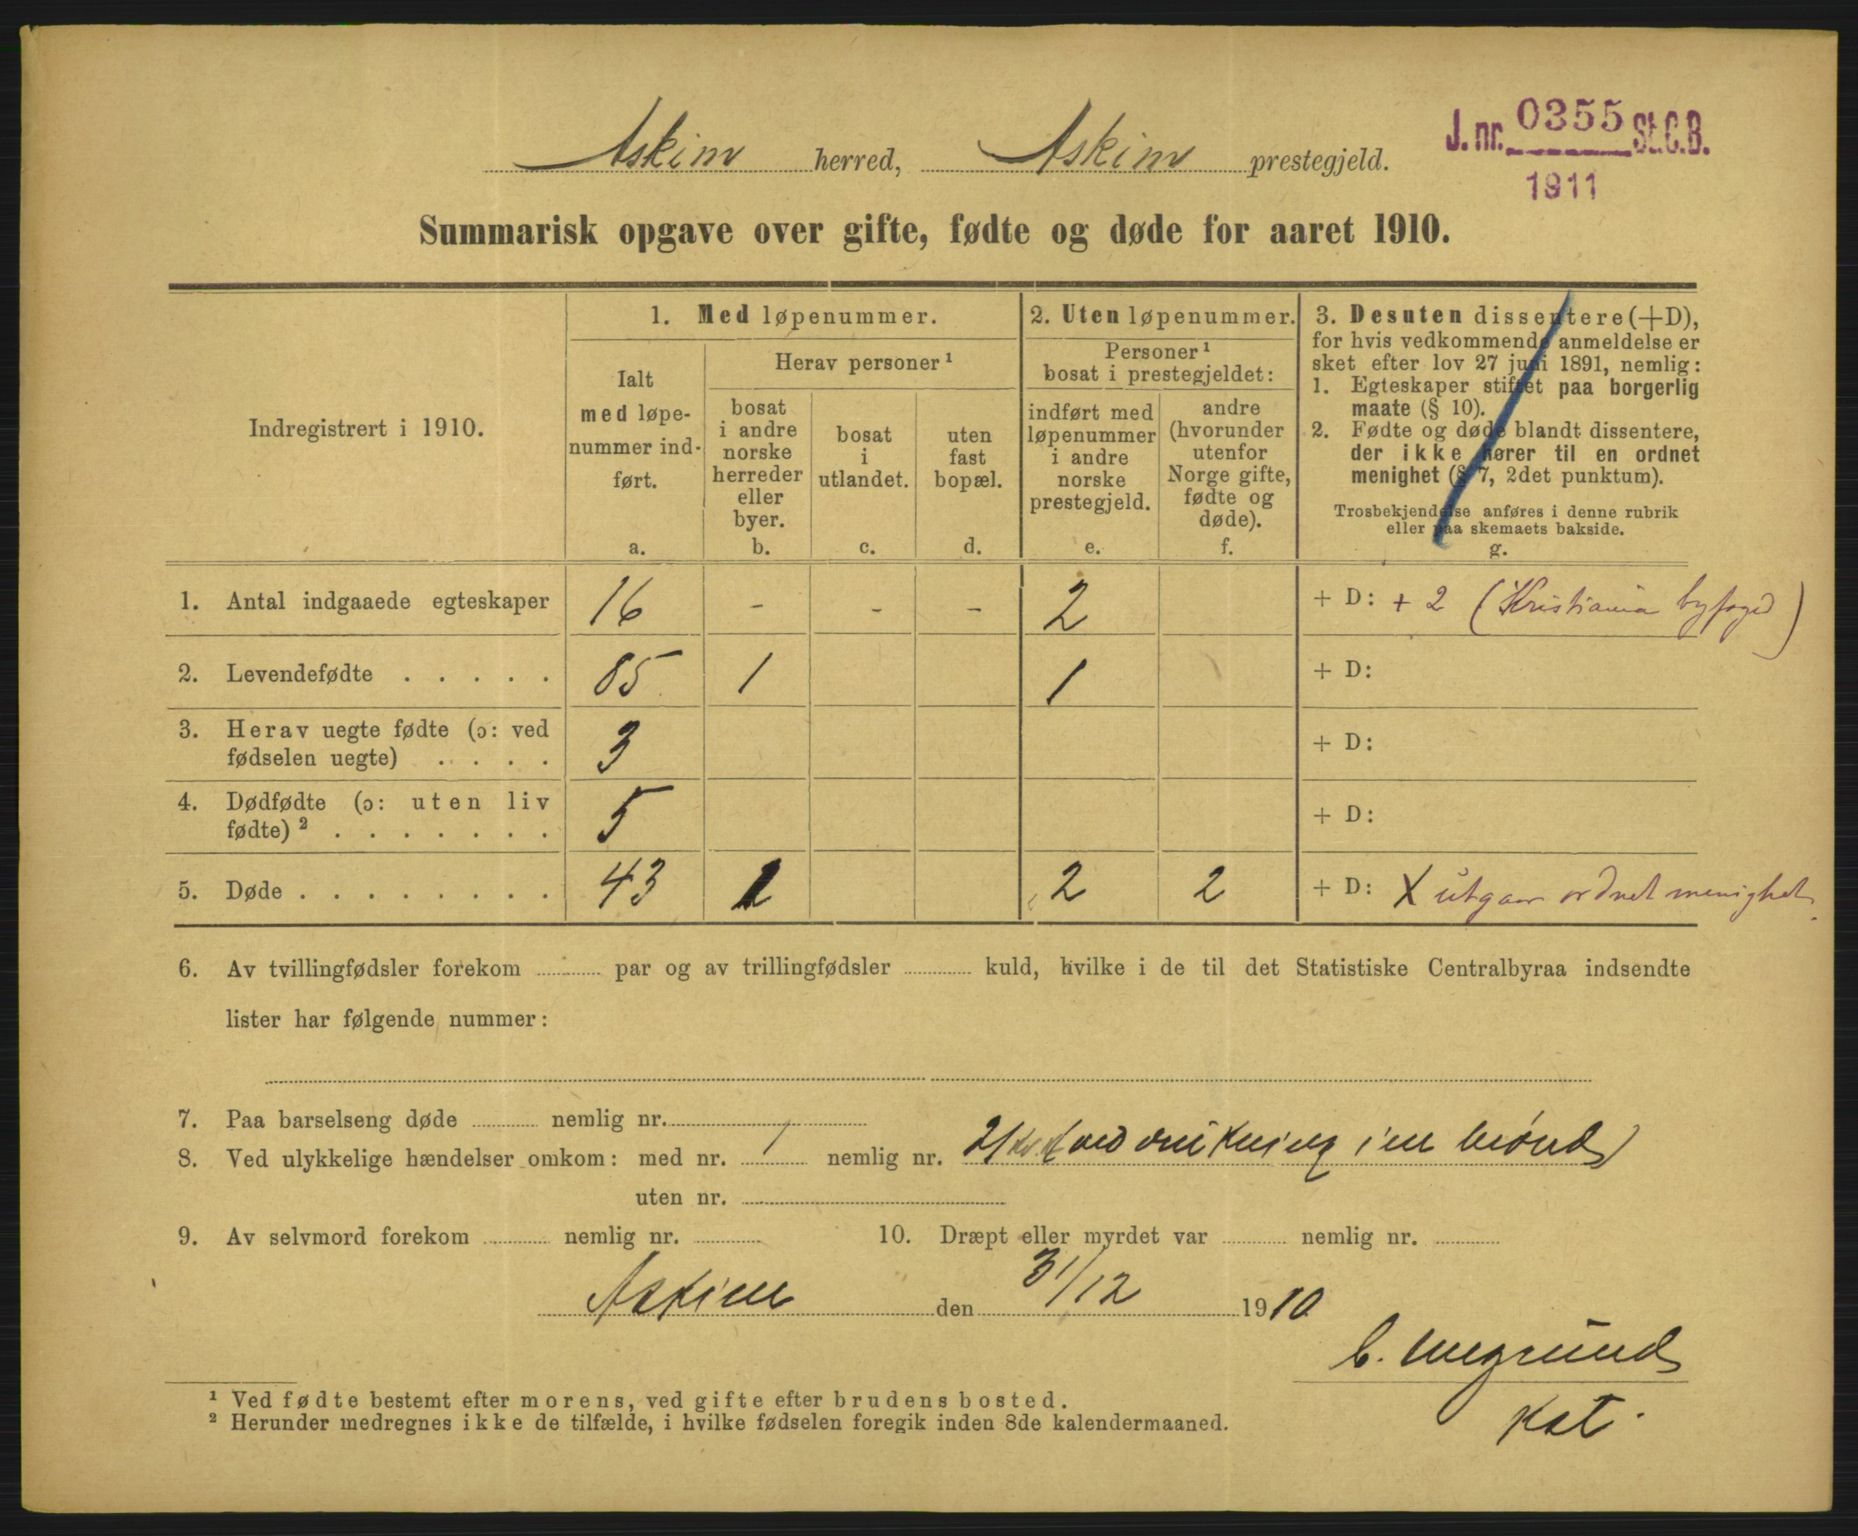 Askim herred, Askim prestegjeld.
J. nr. 0355 St.C.B.
1911
Summarisk opgave over gifte, fødte og døde for aaret 1910.
Indregistrert i 1910.
1. Med løpenummer.
Ialt
med løpe-
nummer ind-
ført.
a.
Herav personer ¹
bosat
i andre
norske
herreder
eller
byer.
b.
bosat
i
utlandet.
c.
uten
fast
bopæl.
d.
2. Uten løpenummer.
Personer ¹
bosat i prestegjeldet:
indført med
løpenummer
i andre
norske
prestegjeld.
e.
andre
(hvorunder
utenfor
Norge gifte,
fødte og
døde).
f.
3. Desuten dissentere (+D),
for hvis vedkommende anmeldelse er
sket efter lov 27 juni 1891, nemlig:
1. Egteskaper stiftet paa borgerlig
maate (§ 10).
2. Fødte og døde blandt dissentere,
der ikke hører til en ordnet
menighet (§ 7, 2det punktum).
Trosbekjendelse anføres i denne rubrik
eller paa skemaets bakside.
g.
1. Antal indgaaede egteskaper 16 - - - 2 + D: + 2 (Kristiania byfogd)
2. Levendefødte . . . . . 85 1 1 + D:
3. Herav uegte fødte (ɔ: ved
fødselen uegte) . . . . 3 + D:
4. Dødfødte (ɔ: uten liv
fødte) ² . . . . . . . 5 + D:
5. Døde . . . . . . . . 43 2 2 + D: X utgaar ordnet menighet.
6. Av tvillingfødsler forekom par og av trillingfødsler kuld, hvilke i de til det Statistiske Centralbyraa indsendte
lister har følgende nummer:
7. Paa barselseng døde nemlig nr.
8. Ved ulykkelige hændelser omkom: med nr. 1 nemlig nr. 21 ved drukning i en brønd)
uten nr.
9. Av selvmord forekom nemlig nr. 10. Dræpt eller myrdet var nemlig nr.
Askim den 31/12 1910
¹ Ved fødte bestemt efter morens, ved gifte efter brudens bosted.
² Herunder medregnes ikke de tilfælde, i hvilke fødselen foregik inden 8de kalendermaaned.